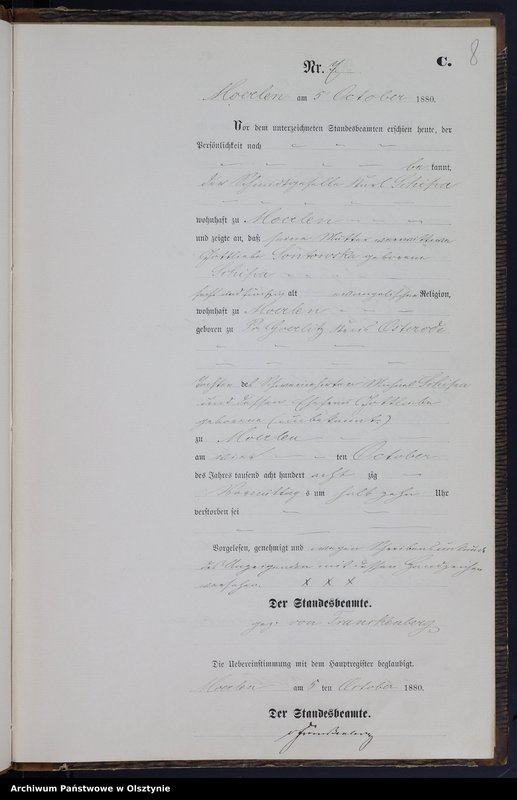 8
Nr. 7
C.
Moerlen am 5 October 1880.
Vor dem unterzeichneten Standesbeamten erschien heute, der
Persönlichkeit nach
be kannt,
der Schmiedgeselle Karl Schipa
wohnhaft zu Moerlen
und zeigte an, daß seine Mutter
Gottliebe Sontowska geborene
Schipa
sechs und fünfzig alt evangelischer Religion,
wohnhaft zu Moerlen
geboren zu Kreis Osterode
Tochter des Michael Schipa
und dessen Ehefrau Gottliebe
geborene (unbekannt)
zu Moerlen
am ten October
des Jahres tausend acht hundert acht zig
Vormittags um halb zehn Uhr
verstorben sei
Vorgelesen, genehmigt und wegen Schreibensunkunde
des Anzeigenden mit dessen Handzeichen
versehen. x x x
Der Standesbeamte.
gez: von Franckenberg
Die Uebereinstimmung mit dem Hauptregister beglaubigt.
Moerlen am 5 ten October 1880.
Der Standesbeamte.
v Franckenberg
Archiwum Państwowe w Olsztynie